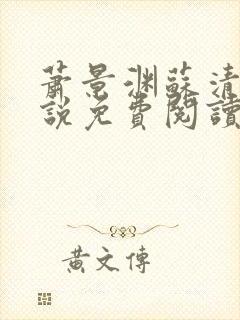 蕭景淵蘇清
說免費閱讀
黃文傳